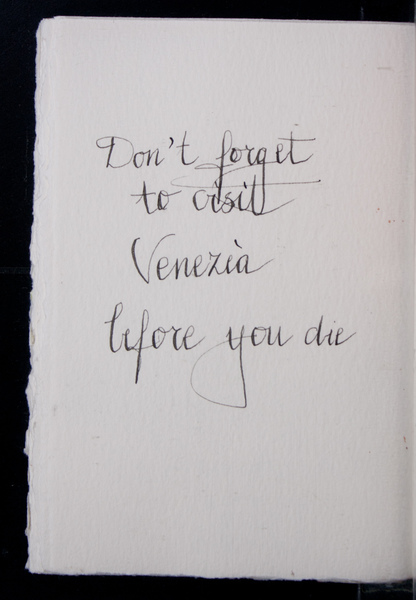 Don't forget
to visit
Venezià
before you die